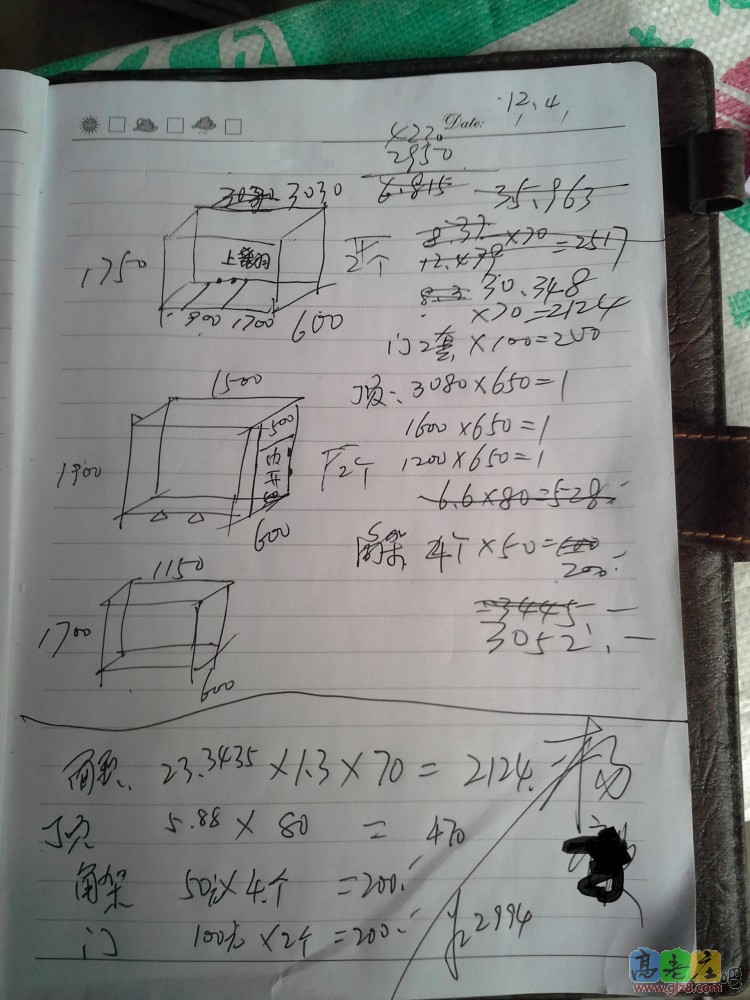 Date: 12.4
4220
2950
6.815 35.963
3030 3030
1750
上翻
900 1700 600
下2个
8.37
12.479 ×70 =2517
8.3 30.348
×70=2124
门2套×100=200
顶:3080×650=1
1600×650=1
1200×650=1
6.6×80=528
角架 4个×50=600
200
3445
3052
1500
1900
500
内开
600
下2个
1150
1700
600
面积 23.3435×1.3×70=2124
顶 5.88×80=470
角架 50元×4个=200
门 100元×2个=200
2994
高老庄吧
www.glz8.com